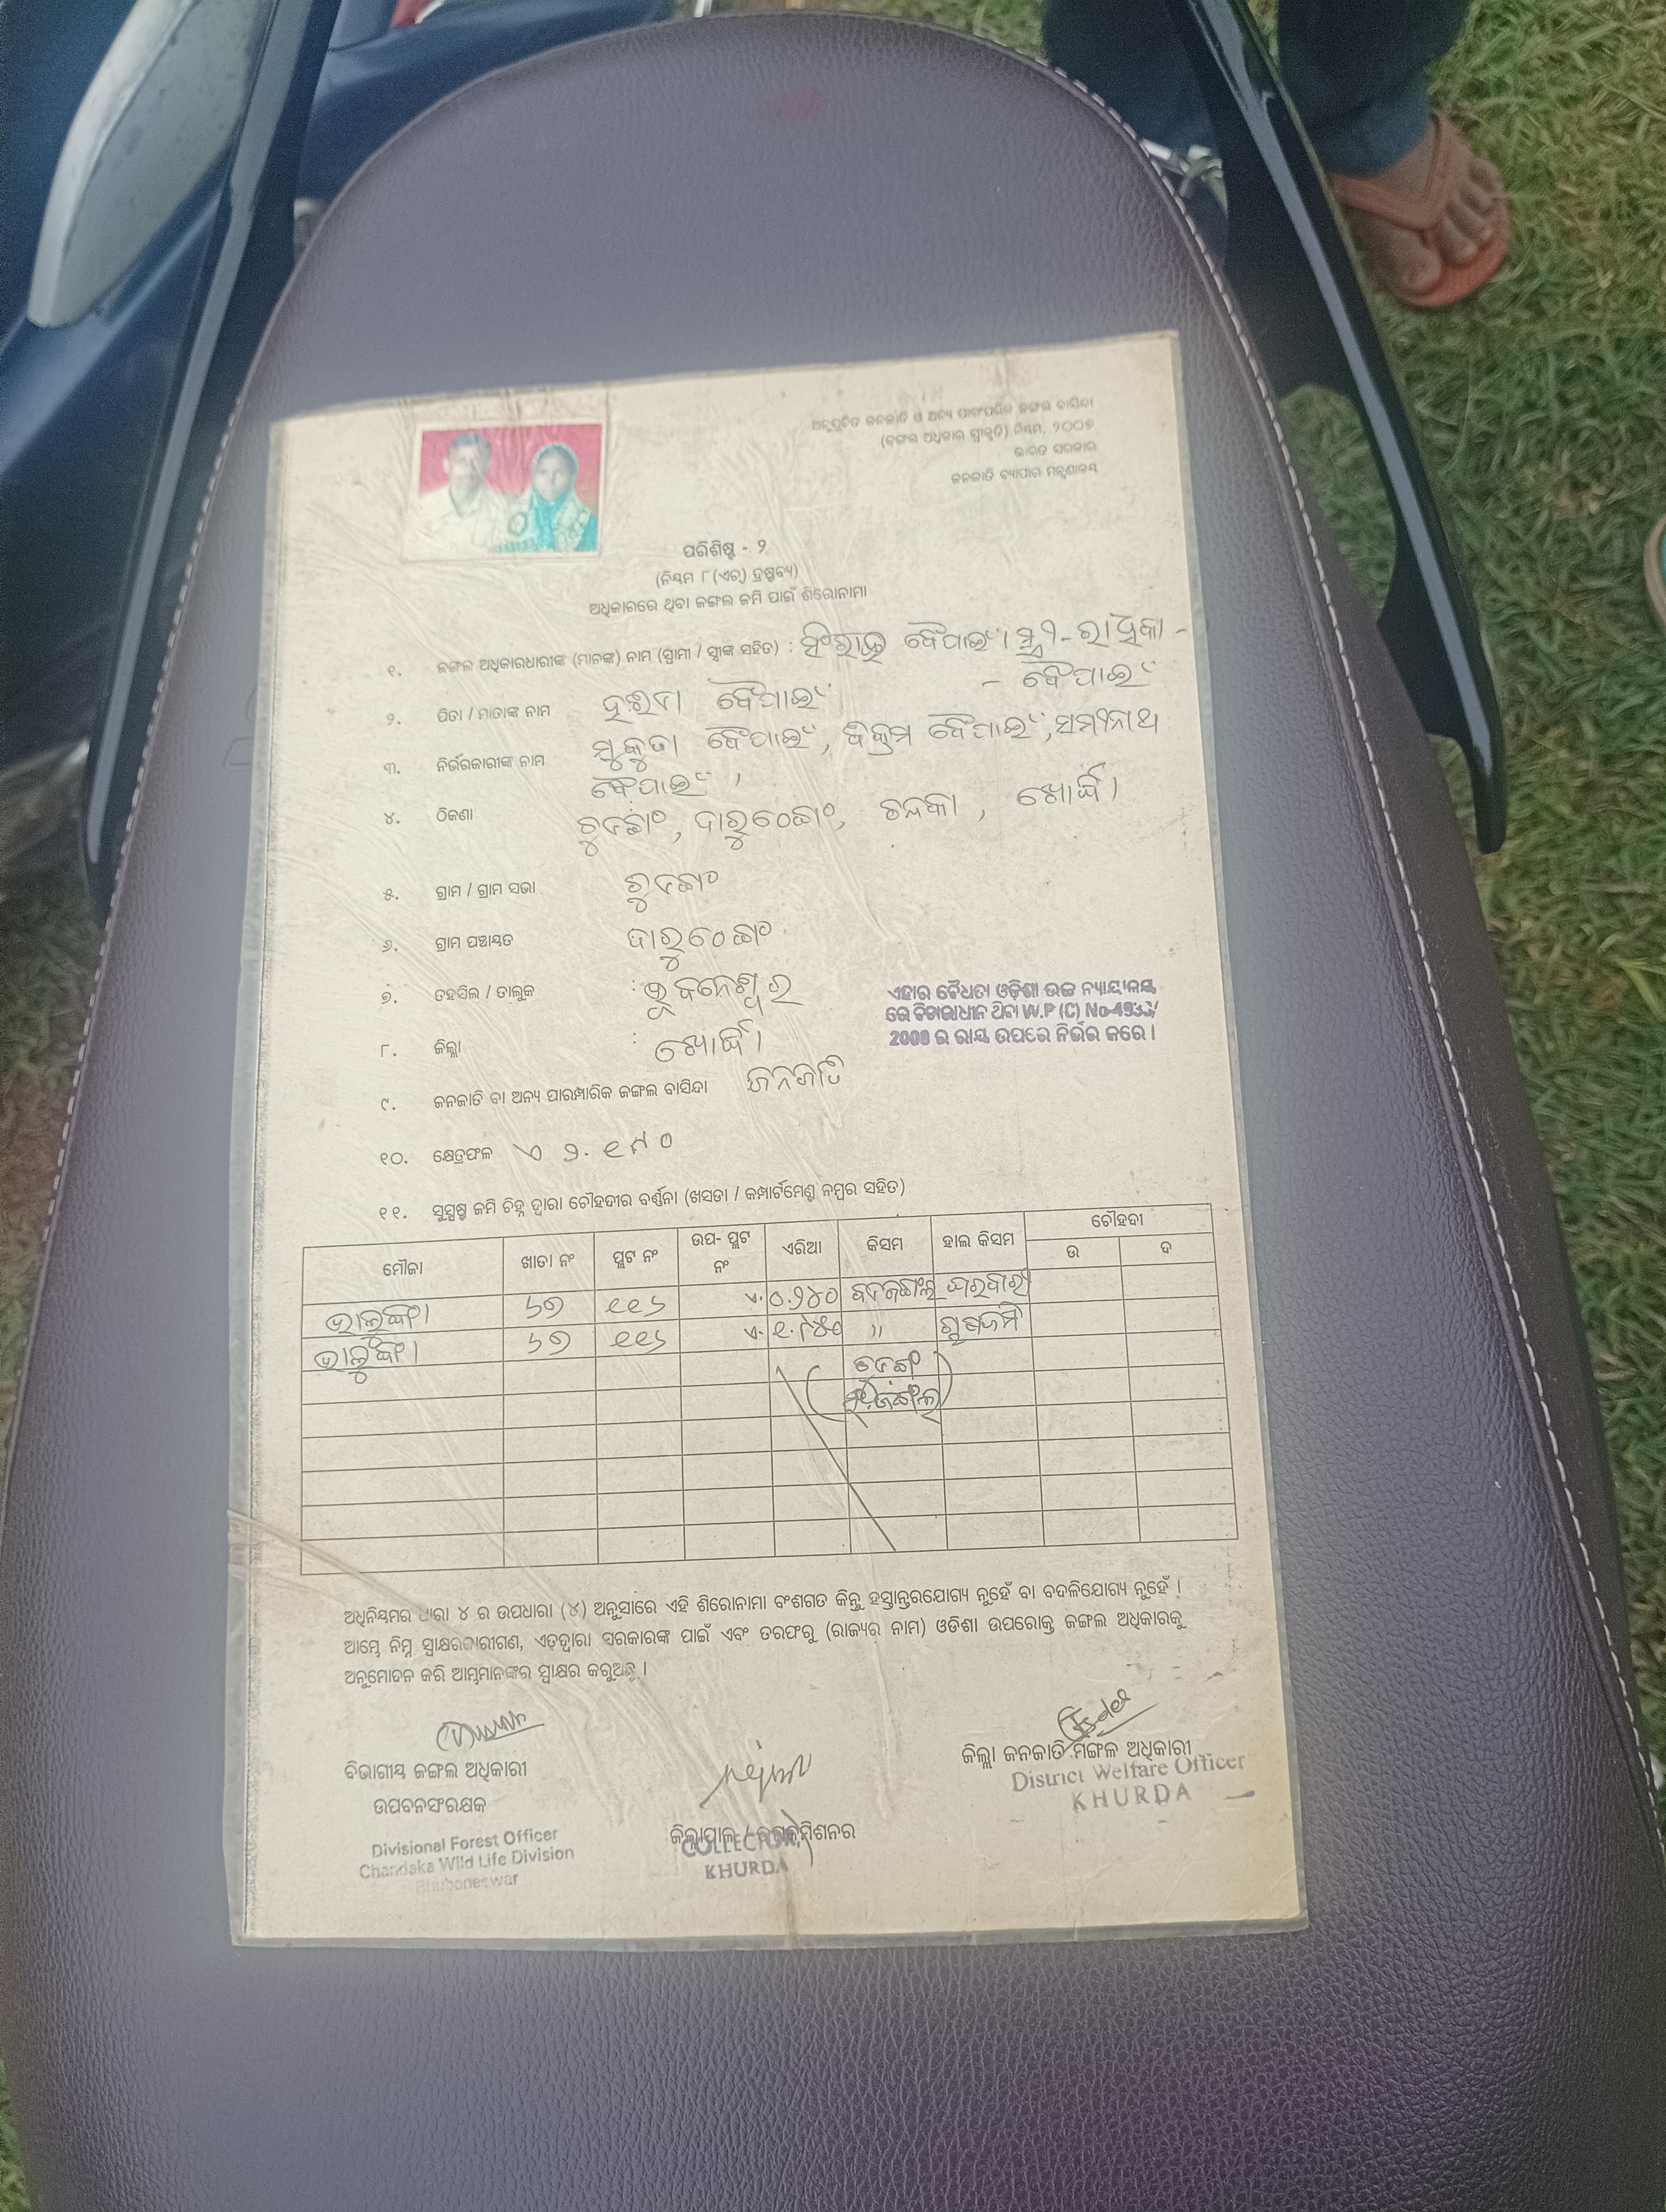 ଅନୁସୂଚିତ ଜନଜାତି ଓ ଅନ୍ୟ ପାରମ୍ପରିକ ଜଙ୍ଗଲ ବାସିନ୍ଦା
(ଜଙ୍ଗଲ ଅଧିକାର ସ୍ୱୀକୃତି) ନିୟମ, ୨୦୦୭
ଭାରତ ସରକାର
ଜନଜାତି ବ୍ୟାପାର ମନ୍ତ୍ରଣାଳୟ
ପରିଶିଷ୍ଟ - ୨
(ନିୟମ ୮(ଏଚ୍) ଦ୍ରଷ୍ଟବ୍ୟ)
ଅଧିକାରରେ ଥିବା ଜଙ୍ଗଲ ଜମି ପାଇଁ ଶିରୋନାମା
୧. ଜଙ୍ଗଲ ଅଧିକାରଧାରୀଙ୍କ (ମାନଙ୍କ) ନାମ (ସ୍ୱାମୀ / ସ୍ତ୍ରୀଙ୍କ ସହିତ) : ବୈପାଇଁ। ସ୍ତ୍ରୀ - ରାଧିକା -
- ବୈପାଇଁ
୨. ପିତା / ମାତାଙ୍କ ନାମ ବୈପାଇଁ
୩. ନିର୍ଭରକାରୀଙ୍କ ନାମ ମୁକୁତା ବୈପାଇଁ, ବିକ୍ରମ ବୈପାଇଁ, ସମୀନାଥ
ବୈପାଇଁ,
୪. ଠିକଣା ଚୁଦଙ୍ଗ, ଦାରୁଠେଙ୍ଗ, ଚନ୍ଦକା, ଖୋର୍ଦ୍ଧା
୫. ଗ୍ରାମ / ଗ୍ରାମ ସଭା ଚୁଦଙ୍ଗ
୬. ଗ୍ରାମ ପଞ୍ଚାୟତ ଦାରୁଠେଙ୍ଗ
୭. ତହସିଲ / ତାଲୁକ : ଭୁବନେଶ୍ୱର
ଏହାର ବୈଧତା ଓଡ଼ିଶା ଉଚ୍ଚ ନ୍ୟାୟାଳୟ
ରେ ବିଚାରାଧୀନ ଥିବା W.P (C) No-4933/
2008 ର ରାୟ ଉପରେ ନିର୍ଭର କରେ ।
୮. ଜିଲ୍ଲା : ଖୋର୍ଦ୍ଧା
୯. ଜନଜାତି ବା ଅନ୍ୟ ପାରମ୍ପାରିକ ଜଙ୍ଗଲ ବାସିନ୍ଦା ଜନଜାତି
୧୦. କ୍ଷେତ୍ରଫଳ
୧୧. ସୁସ୍ପଷ୍ଟ ଜମି ଚିହ୍ନ ଦ୍ୱାରା ଚୌହଦୀର ବର୍ଣ୍ଣନା (ଖସଡା / କମ୍ପାର୍ଟମେଣ୍ଟ ନମ୍ବର ସହିତ)
ମୌଜା ଖାତା ନଂ ପ୍ଲଟ ନଂ ଉପ- ପ୍ଲଟ ନଂ ଏରିଆ କିସମ ହାଲ କିସମ ଚୌହଦୀ
ଉ ଦ
୬୭ ୧୧୬ ଏ. ୦.୨୪୦ ଘରବାରୀ
୬୭ ୧୧୬ ଏ. " ଚାଷଜମି
ଅଧିନିୟମର ଧାରା ୪ ର ଉପଧାରା (୪) ଅନୁସାରେ ଏହି ଶିରୋନାମା ବଂଶଗତ କିନ୍ତୁ ହସ୍ତାନ୍ତରଯୋଗ୍ୟ ନୁହେଁ ବା ବଦଳିଯୋଗ୍ୟ ନୁହେଁ ।
ଆମ୍ଭେ ନିମ୍ନ ସ୍ୱାକ୍ଷରକାରୀଗଣ, ଏତଦ୍ଦ୍ୱାରା ସରକାରଙ୍କ ପାଇଁ ଏବଂ ତରଫରୁ (ରାଜ୍ୟର ନାମ) ଓଡିଶା ଉପରୋକ୍ତ ଜଙ୍ଗଲ ଅଧିକାରକୁ
ଅନୁମୋଦନ କରି ଆମ୍ଭମାନଙ୍କର ସ୍ୱାକ୍ଷର କରୁଅଛୁ ।
ବିଭାଗୀୟ ଜଙ୍ଗଲ ଅଧିକାରୀ
ଉପବନସଂରକ୍ଷକ
Divisional Forest Officer
Chandaka Wild Life Division
Bhubaneswar
ଜିଲ୍ଲାପାଳ / ଉପକମିଶନର
COLLECTOR,
KHURDA
ଜିଲ୍ଲା ଜନଜାତି ମଙ୍ଗଳ ଅଧିକାରୀ
District Welfare Officer
KHURDA